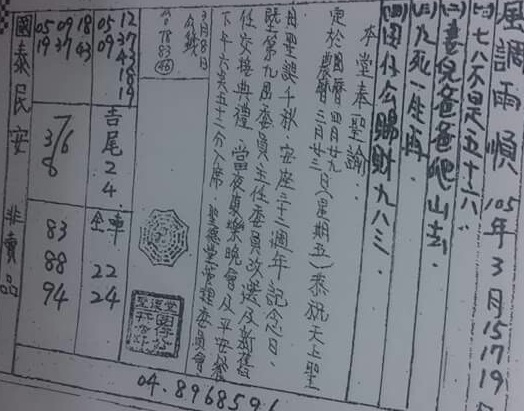 風調雨順 105年3月15 17 19
(一)七八不是五十六.
(二)妻兒爸爸爬山去.
(三)九死一生再.
(四)田仔公賜財九八三.
本堂奉聖諭:
定於國曆四月廿九
農曆三月廿三日(星期五)恭祝天上聖
母聖誕千秋.安座二十二週年記念日.
既第九屆委員主任委員改選及新舊
任交接典禮.當夜康樂晚會及平安餐
下午六點五十二分入席.聖德堂管理委員會
3月8日
78 83 46
12 37 43 18 19
05 09
18 43
09 37
05 19
吉尾24.
3/6
8
全車
22
24
83
88
94
國泰民安 非賣品
04.896859